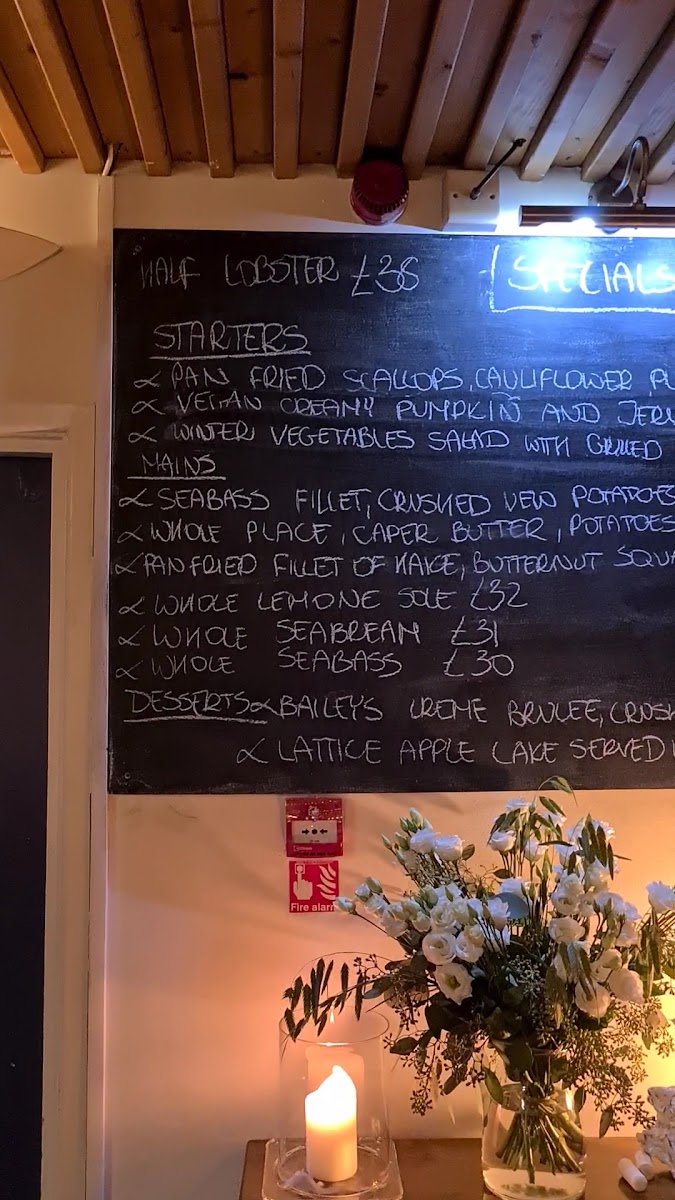 HALF LOBSTER £36
SPECIALS
STARTERS
∝ PAN FRIED SCALLOPS, CAULIFLOWER PU
∝ VEGAN CREAMY PUMPKIN AND JERU
∝ WINTER VEGETABLES SALAD WITH GRILLED
MAINS
∝ SEABASS FILLET, CRUSHED NEW POTATOES
∝ WHOLE PLACE, CAPER BUTTER, POTATOES
∝ PAN FRIED FILLET OF HAKE, BUTTERNUT SQUA
∝ WHOLE LEMONE SOLE £32
∝ WHOLE SEABREAM £31
∝ WHOLE SEABASS £30
DESSERTS ∝ BAILEY'S CREME BRULEE, CRUSH
∝ LATTICE APPLE CAKE SERVED
Fire alarm